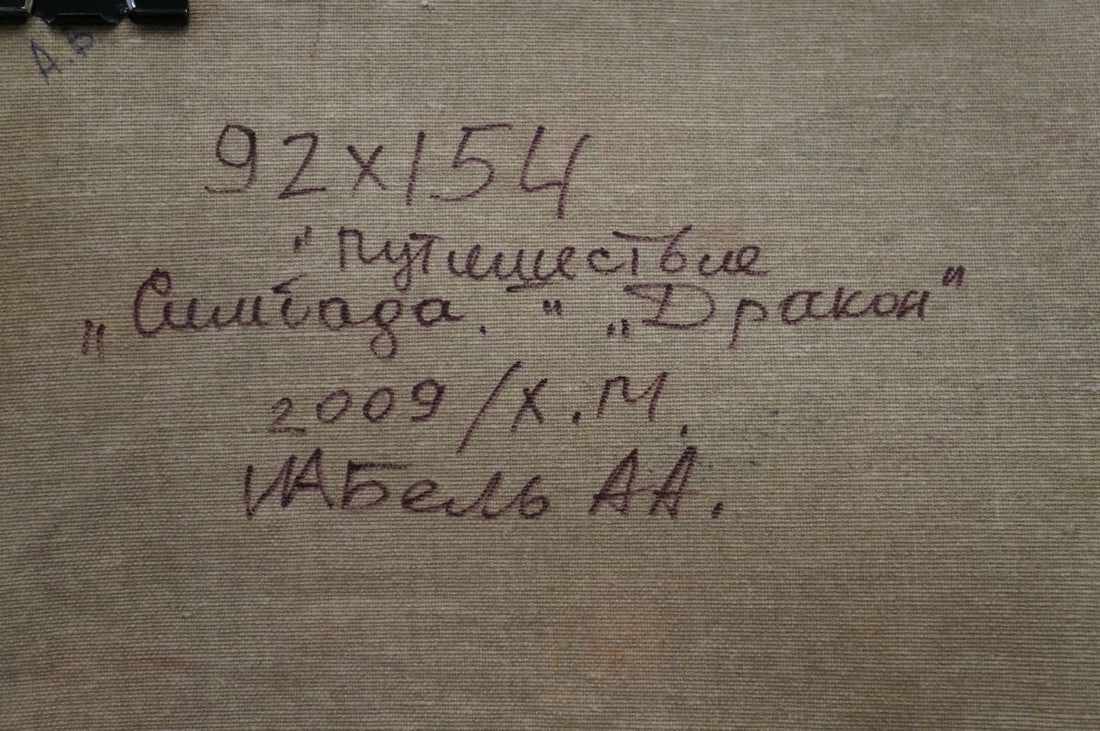 А.В
92х154
"Путишествие
„Симбада." „Дракон"
2009/Х.М.
ИАБель АА.